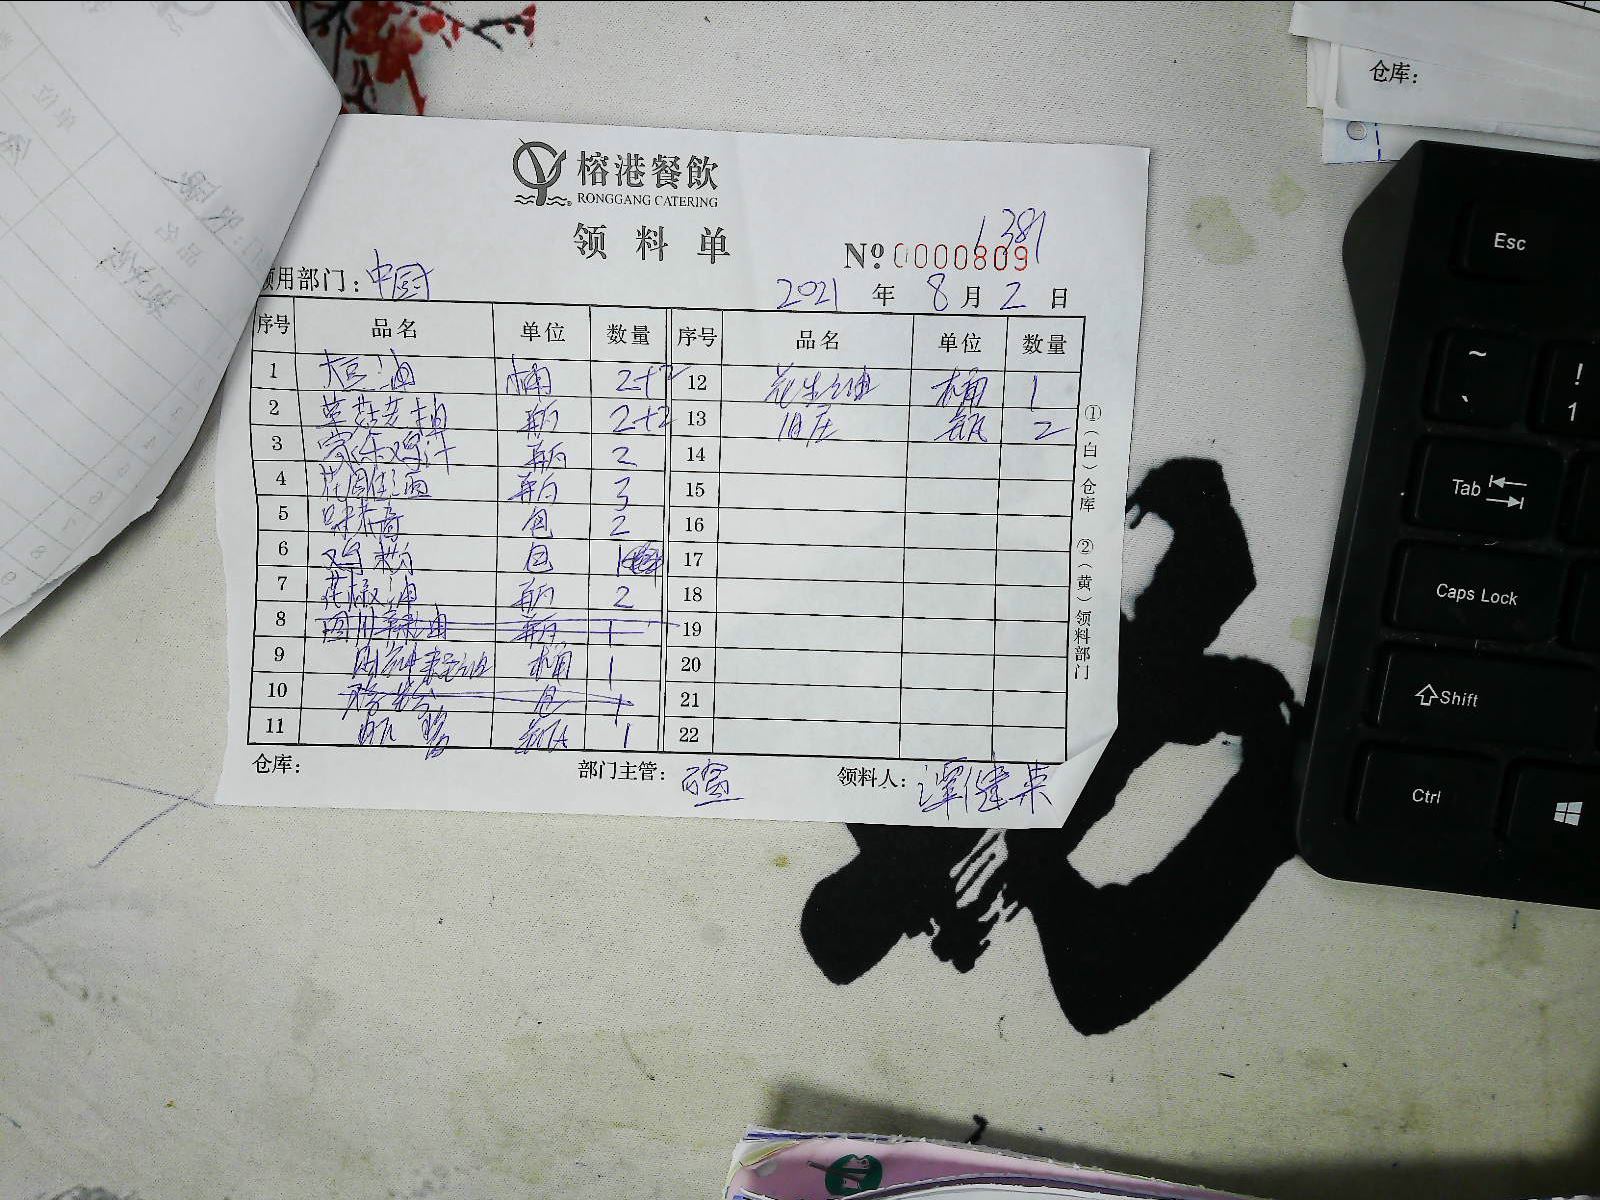 仓库:
榕港餐飲
RONGGANG CATERING
领料单
1381
№ 0000809
领用部门: 中厨
2021 年 8 月 2 日
序号 品名 单位 数量 序号 品名 单位 数量
1 大豆油 桶 2+2 12 花生油 桶 1
2 草菇老抽 瓶 2+2 13 瓶 2
3 家乐鸡汁 瓶 2 14
4 瓶 3 15
5 味 包 2 16
6 鸡粉 包 1 17
7 花椒油 瓶 2 18
8 四川辣油 瓶 1 19
9 桶 1 20
10 包 1 21
11 1 22
仓库: 部门主管: 领料人: 谭健荣
①(白)仓库 ②(黄)领料部门
Esc
~
`
!
1
Tab
Caps Lock
Shift
Ctrl